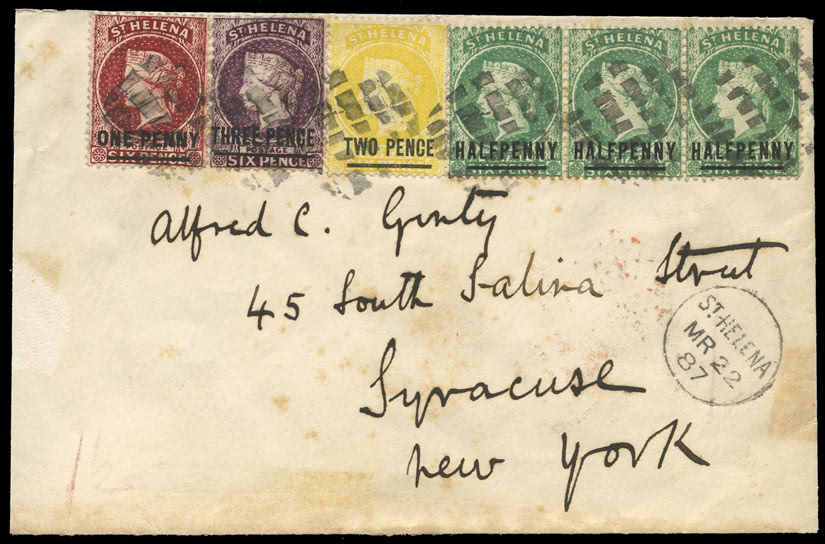 ST HELENA ST HELENA ST HELENA ST HELENA ST HELENA ST HELENA
ONE PENNY THREE PENCE TWO PENCE HALFPENNY HALFPENNY HALFPENNY
SIXPENCE POSTAGE SIX PENCE SIXPENCE SIXPENCE SIXPENCE
Alfred C. Ginty
45 South Salina Street
Syracuse
New York
ST HELENA
MR 22
87